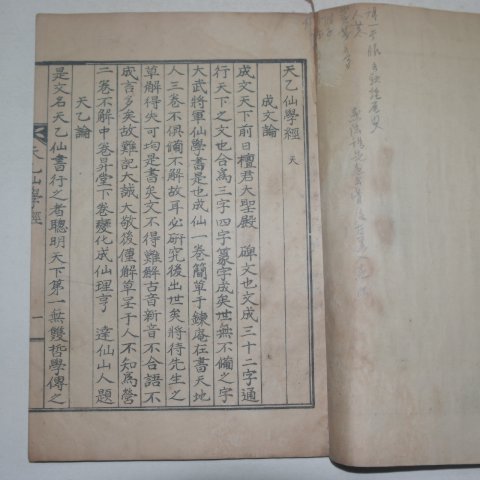 天乙仙學經 天
成文論
成文天下前日檀君大聖殿 碑文也文成三十二字通
行天下之文也合爲三字四字篆字成矣世無不備之字
大武將軍仙學書是也成仙一卷簡草于鍊庵在書天地
人三卷不俱備不解故耳必硏究後出世矣將待先生之
草解得失可均是書矣文不得難解古音新音不合語不
成言多矣故難記大誠大敬後僅解草呈于人不知爲營
二卷不解中卷昇堂下卷變化成仙理亨 達仙山人題
天乙論
是文名天乙仙書行之者聰明天下第一無雙哲學傳之
天乙仙學經
一